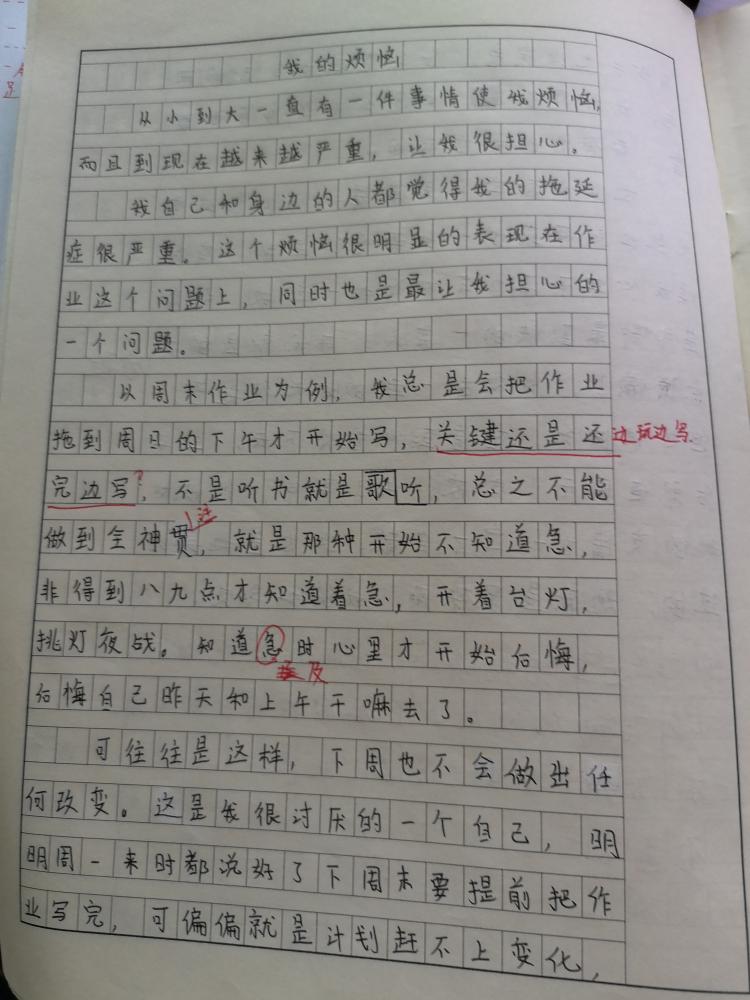 我的烦恼
从小到大一直有一件事情使我烦恼,
而且到现在越来越严重，让我很担心。
我自己和身边的人都觉得我的拖延
症很严重。这个烦恼很明显的表现在作
业这个问题上，同时也是最让我担心的
一个问题。
以周末作业为例，我总是会把作业
拖到周日的下午才开始写，关键还是还边玩边写
完边写?，不是听书就是歌听，总之不能
注
做到全神贯，就是那种开始不知道急，
非得到八九点才知道着急，开着台灯，
挑灯夜战。知道急时心里才开始后悔，
及
后悔自己昨天和上午干嘛去了。
可往往是这样，下周也不会做出任
何改变。这是我很讨厌的一个自己，明
明周一来时都说好了下周末要提前把作
业写完，可偏偏就是计划赶不上变化，